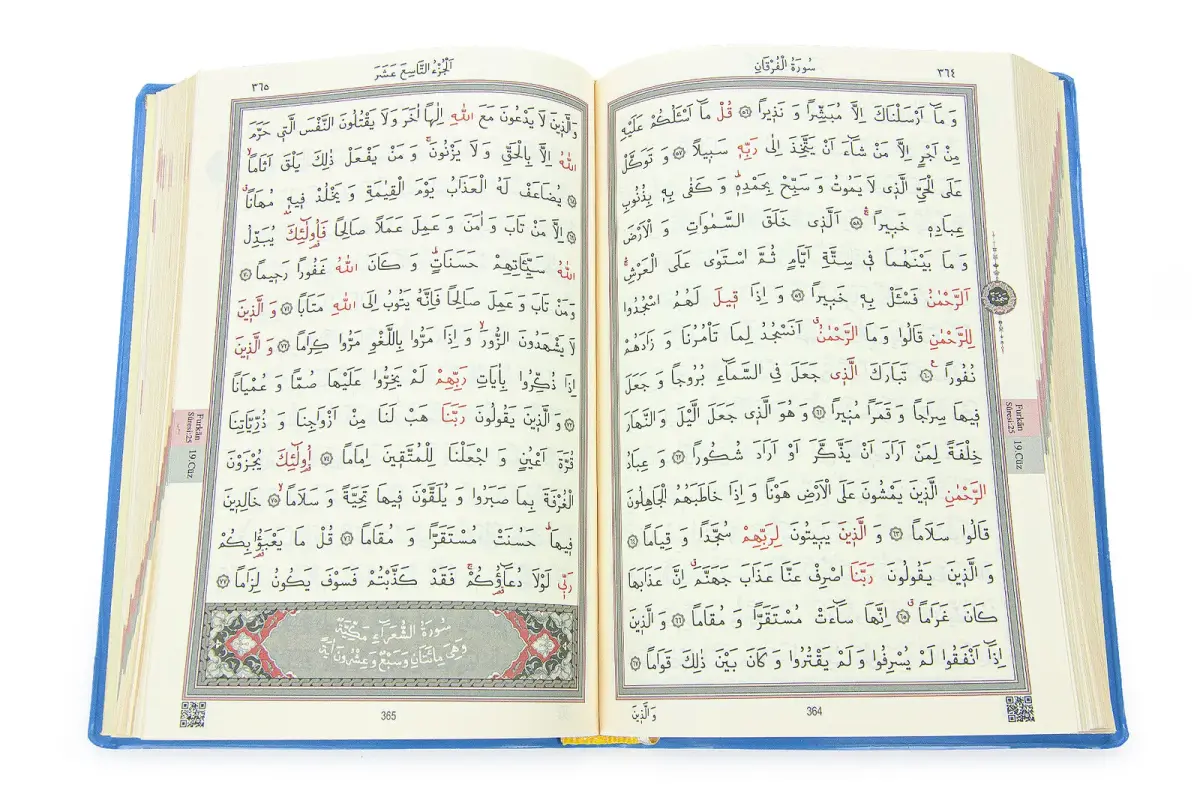 سُورَةُ الْفُرْقَانِ
٣٦٤
وَ مَٓا اَرْسَلْنَاكَ اِلَّا مُبَشِّرًا وَ نَذ۪يرًا ﴿٥٦﴾ قُلْ مَٓا اَسْـَٔلُكُمْ عَلَيْهِ
مِنْ اَجْرٍ اِلَّا مَنْ شَٓاءَ اَنْ يَتَّخِذَ اِلٰى رَبِّه۪ سَب۪يلًا ﴿٥٧﴾ وَ تَوَكَّلْ
عَلَى الْحَيِّ الَّذ۪ي لَا يَمُوتُ وَ سَبِّحْ بِحَمْدِه۪ۜ وَ كَفٰى بِه۪ بِذُنُوبِ
عِبَادِه۪ خَب۪يرًاۚ ﴿٥٨﴾ اَلَّذ۪ي خَلَقَ السَّمٰوَاتِ وَ الْاَرْضَ
وَ مَا بَيْنَهُمَا ف۪ي سِتَّةِ اَيَّامٍ ثُمَّ اسْتَوٰى عَلَى الْعَرْشِۚ
اَلرَّحْمٰنُ فَسْـَٔلْ بِه۪ خَب۪يرًا ﴿٥٩﴾ وَ اِذَا ق۪يلَ لَهُمُ اسْجُدُوا
لِلرَّحْمٰنِ قَالُوا وَ مَا الرَّحْمٰنُۗ اَنَسْجُدُ لِمَا تَأْمُرُنَا وَ زَادَهُمْ
نُفُورًا ﴿٦٠﴾ تَبَارَكَ الَّذ۪ي جَعَلَ فِي السَّمَٓاءِ بُرُوجًا وَ جَعَلَ
ف۪يهَا سِرَاجًا وَ قَمَرًا مُن۪يرًا ﴿٦١﴾ وَ هُوَ الَّذ۪ي جَعَلَ الَّيْلَ وَ النَّهَارَ
خِلْفَةً لِمَنْ اَرَادَ اَنْ يَذَّكَّرَ اَوْ اَرَادَ شُكُورًا ﴿٦٢﴾ وَ عِبَادُ
الرَّحْمٰنِ الَّذ۪ينَ يَمْشُونَ عَلَى الْاَرْضِ هَوْنًا وَ اِذَا خَاطَبَهُمُ الْجَاهِلُونَ
قَالُوا سَلَامًا ﴿٦٣﴾ وَ الَّذ۪ينَ يَب۪يتُونَ لِرَبِّهِمْ سُجَّدًا وَ قِيَامًا ﴿٦٤﴾
وَ الَّذ۪ينَ يَقُولُونَ رَبَّنَا اصْرِفْ عَنَّا عَذَابَ جَهَنَّمَۗ اِنَّ عَذَابَهَا
كَانَ غَرَامًاۗ ﴿٦٥﴾ اِنَّهَا سَٓاءَتْ مُسْتَقَرًّا وَ مُقَامًا ﴿٦٦﴾ وَ الَّذ۪ينَ
اِذَٓا اَنْفَقُوا لَمْ يُسْرِفُوا وَ لَمْ يَقْتُرُوا وَ كَانَ بَيْنَ ذٰلِكَ قَوَامًا ﴿٦٧﴾
سجدة
Furkân
Sûresi:25
19.Cüz
364
وَ الَّذ۪ينَ
اَلْجُزْءُ التَّاسِعَ عَشَرَ
٣٦٥
وَالَّذ۪ينَ لَا يَدْعُونَ مَعَ اللّٰهِ اِلٰهًا اٰخَرَ وَ لَا يَقْتُلُونَ النَّفْسَ الَّت۪ي حَرَّمَ
اللّٰهُ اِلَّا بِالْحَقِّ وَ لَا يَزْنُونَۚ وَ مَنْ يَفْعَلْ ذٰلِكَ يَلْقَ اَثَامًاۙ
﴿٦٨﴾ يُضَاعَفْ لَهُ الْعَذَابُ يَوْمَ الْقِيٰمَةِ وَ يَخْلُدْ ف۪يه۪ مُهَانًاۗ
﴿٦٩﴾ اِلَّا مَنْ تَابَ وَ اٰمَنَ وَ عَمِلَ عَمَلًا صَالِحًا فَاُو۬لٰٓئِكَ يُبَدِّلُ
اللّٰهُ سَيِّـَٔاتِهِمْ حَسَنَاتٍۜ وَ كَانَ اللّٰهُ غَفُورًا رَح۪يمًا ﴿٧٠﴾
وَمَنْ تَابَ وَ عَمِلَ صَالِحًا فَاِنَّهُ يَتُوبُ اِلَى اللّٰهِ مَتَابًا ﴿٧١﴾ وَ الَّذ۪ينَ
لَا يَشْهَدُونَ الزُّورَۙ وَ اِذَا مَرُّوا بِاللَّغْوِ مَرُّوا كِرَامًا ﴿٧٢﴾ وَ الَّذ۪ينَ
اِذَا ذُكِّرُوا بِاٰيَاتِ رَبِّهِمْ لَمْ يَخِرُّوا عَلَيْهَا صُمًّا وَ عُمْيَانًا
﴿٧٣﴾ وَ الَّذ۪ينَ يَقُولُونَ رَبَّنَا هَبْ لَنَا مِنْ اَزْوَاجِنَا وَ ذُرِّيَّاتِنَا
قُرَّةَ اَعْيُنٍ وَ اجْعَلْنَا لِلْمُتَّق۪ينَ اِمَامًا ﴿٧٤﴾ اُو۬لٰٓئِكَ يُجْزَوْنَ
الْغُرْفَةَ بِمَا صَبَرُوا وَ يُلَقَّوْنَ ف۪يهَا تَحِيَّةً وَ سَلَامًاۙ ﴿٧٥﴾ خَالِد۪ينَ
ف۪يهَاۜ حَسُنَتْ مُسْتَقَرًّا وَ مُقَامًا ﴿٧٦﴾ قُلْ مَا يَعْبَؤُ۬ا بِكُمْ
رَبّ۪ي لَوْلَا دُعَٓاؤُ۬كُمْۚ فَقَدْ كَذَّبْتُمْ فَسَوْفَ يَكُونُ لِزَامًا ﴿٧٧﴾
سُورَةُ الشُّعَرَٓاءِ مَكِّيَّةٌ
وَهِيَ مِائَتَانِ وَسَبْعٌ وَعِشْرُونَ اٰيَةً
Furkân
Sûresi:25
19.Cüz
365